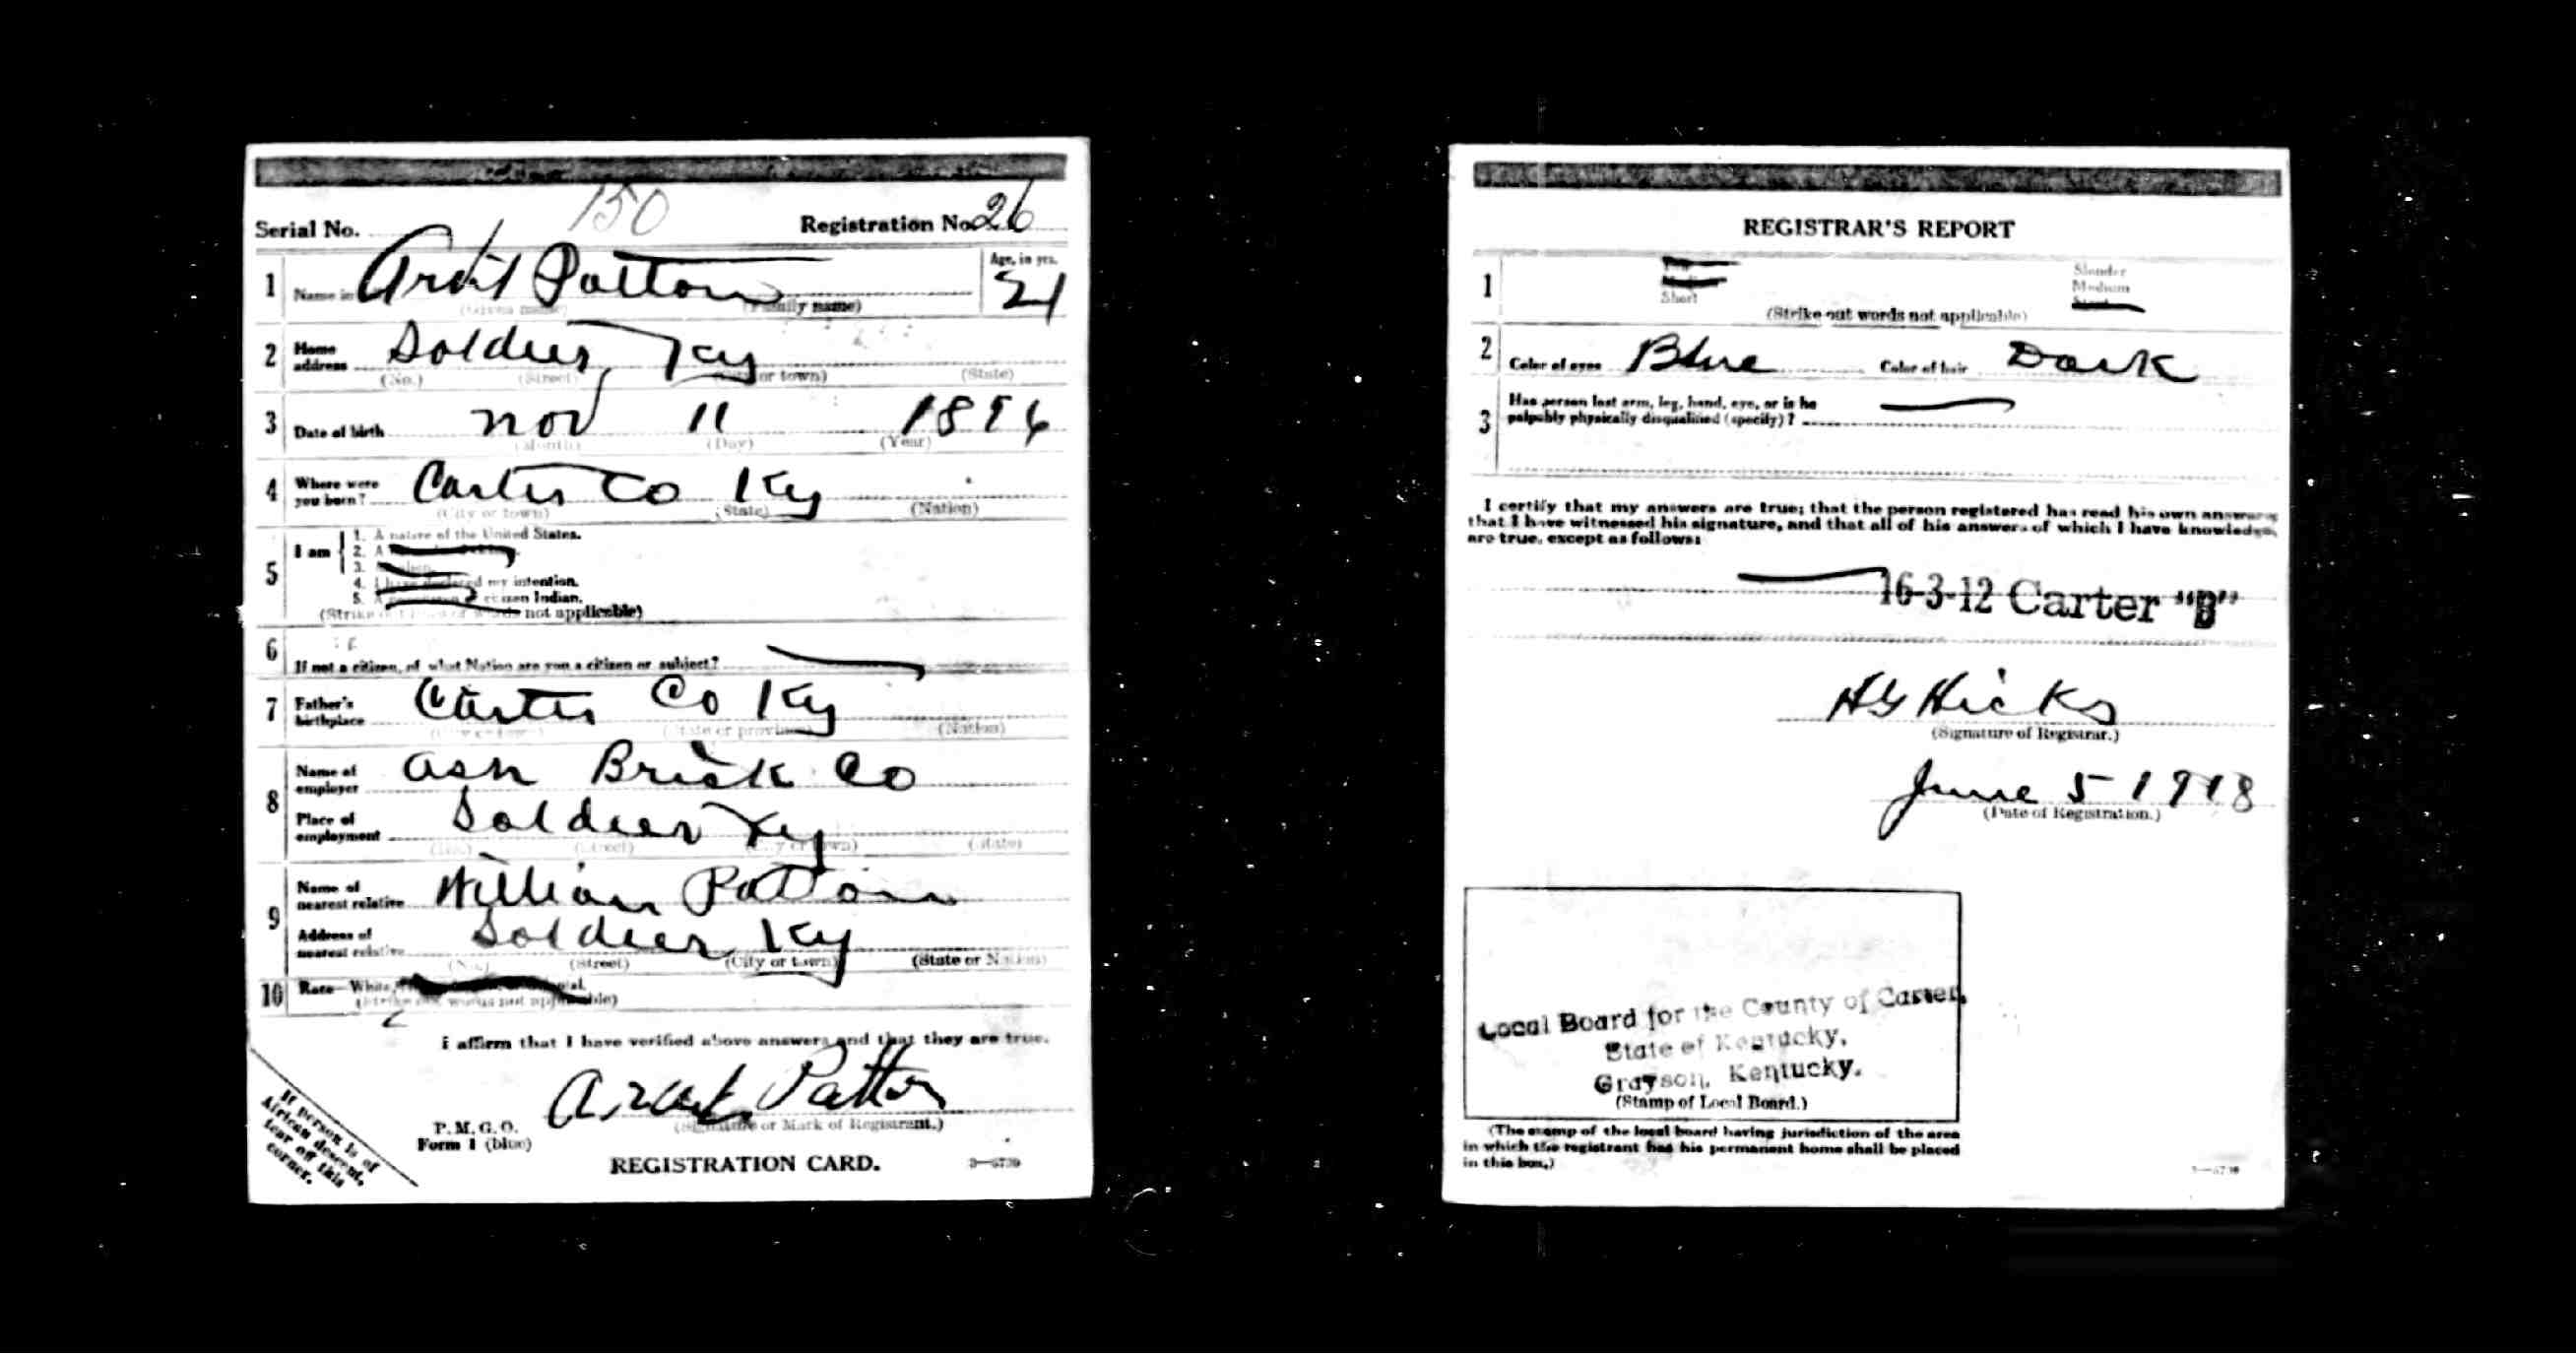 Serial No. 150 Registration No. 26
1 Name in Patton Age, in yrs. 21
(Given name) (Family name)
2 Home address Soldier, Ky
(No.) (Street) (City or town) (State)
3 Date of birth Nov 11 1896
(Month) (Day) (Year)
4 Where were you born? Carter Co Ky
(City or town) (State) (Nation)
5 I am
1. A native of the United States.
2. A
3. An alien.
4. I have declared my intention.
5. A citizen Indian.
(Strike out words not applicable)
6 If not a citizen, of what Nation are you a citizen or subject?
7 Father's birthplace Carter Co Ky
(City or town) (State or province) (Nation)
8 Name of employer Ash Brick Co
Place of employment Soldier Ky
(No.) (Street) (City or town) (State)
9 Name of nearest relative William Patton
Address of nearest relative Soldier, Ky
(No.) (Street) (City or town) (State or Nation)
10 Race—White,
(Strike out words not applicable)
I affirm that I have verified above answers and that they are true.
Patton
(Signature or Mark of Registrant.)
P. M. G. O.
Form 1 (blue)
REGISTRATION CARD.
If person is of
African descent,
tear off this
corner.
REGISTRAR'S REPORT
1 Tall Slender
Medium Medium
Short Stout
(Strike out words not applicable)
2 Color of eyes Blue Color of hair Dark
3 Has person lost arm, leg, hand, eye, or is he
palpably physically disqualified (specify)?
I certify that my answers are true; that the person registered has read his own answers,
that I have witnessed his signature, and that all of his answers of which I have knowledge
are true, except as follows:
16-3-12 Carter "B"
Hicks
(Signature of Registrar.)
June 5 1918
(Date of Registration.)
Local Board for the County of Carter,
State of Kentucky,
Grayson, Kentucky.
(Stamp of Local Board.)
(The stamp of the local board having jurisdiction of the area
in which the registrant has his permanent home shall be placed
in this box.)